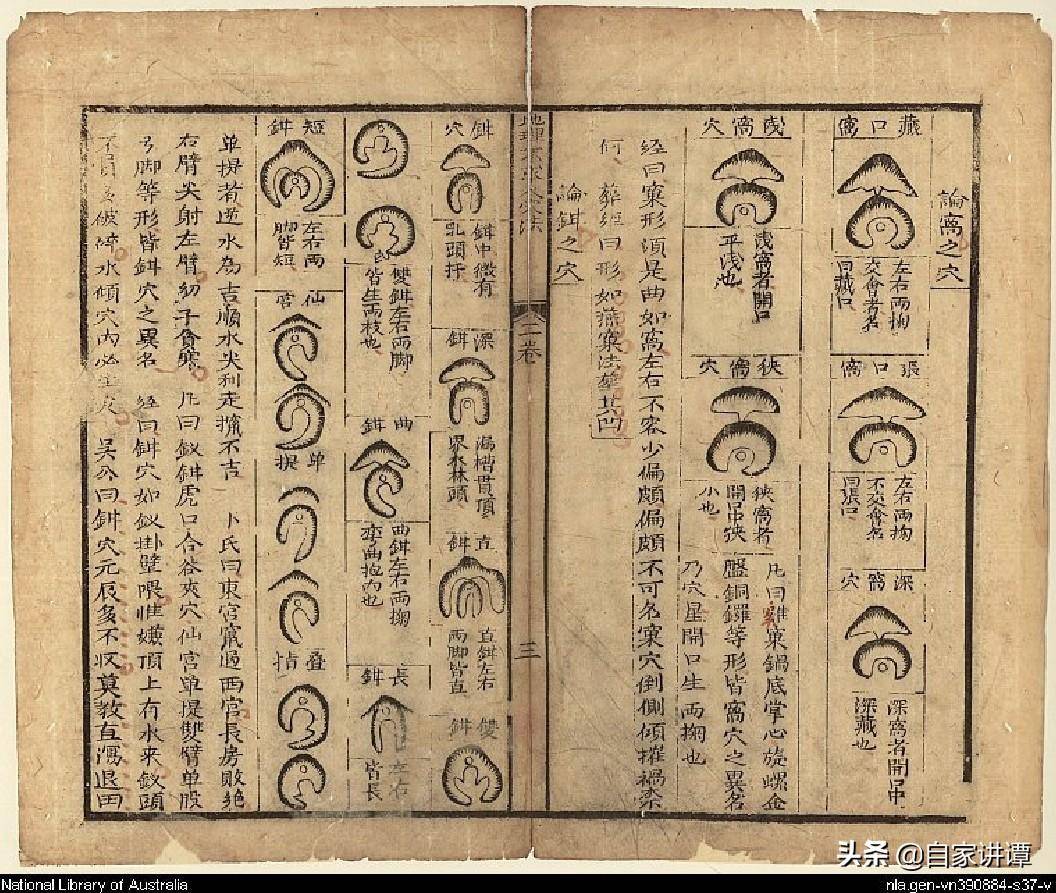 論窩之穴
燕口窩
左右兩掬
交會者名
曰藏口
張口窩
左右兩掬
不交會名
曰張口
深窩穴
深窩者開口中
深藏也
淺窩穴
淺窩者開口
平淺也
狹窩穴
狹窩者
開口中狹
小也
凡曰雞窠鍋底掌心旋螺金
盤銅鑼等形皆窩穴之異名
乃穴星開口生兩掬也
經曰窠形須是曲如窩左右不容少偏頗偏頗不可名窠穴倒側傾摧禍奈
何 葬經曰形如燕窠法葬其凹
論鉗之穴
二卷
三
鉗穴
鉗中微有
乳頭扦
深鉗
漏槽貫頂
界水淋頭
直鉗
直鉗左右
兩脚皆直
雙鉗
雙鉗左右兩脚
皆生兩枝也
曲鉗
曲鉗左右兩掬
彎曲抱內也
長鉗
左右
皆長
短鉗
左右兩
脚皆短
仙宮
單提
疊指
單提者逆水為吉順水尖利走擴不吉 卜氏曰東宮竄過西宮長房敗絕
右臂尖射左臂幼子貧寒 凡曰釵鉗虎口合谷夾穴仙宮單提雙臂單股
弓脚等形皆鉗穴之異名 經曰鉗穴如釵掛壁喂惟嫌頂上有水來釵頭
不圓多破碎水傾穴內必生災 吳公曰鉗穴元辰多不收莫教直瀉退田
National Library of Australia
nla.gen-vn390884-s37-v
头条 @自家讲谭